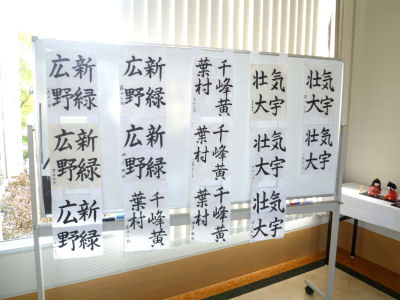 気宇
壮大
気宇
壮大
気宇
壮大
気宇
壮大
気宇
壮大
千峰黄
葉村
千峰黄
葉村
千峰黄
葉村
新緑
広野
新緑
広野
千峰黄
葉村
新緑
広野
新緑
広野
新緑
広野